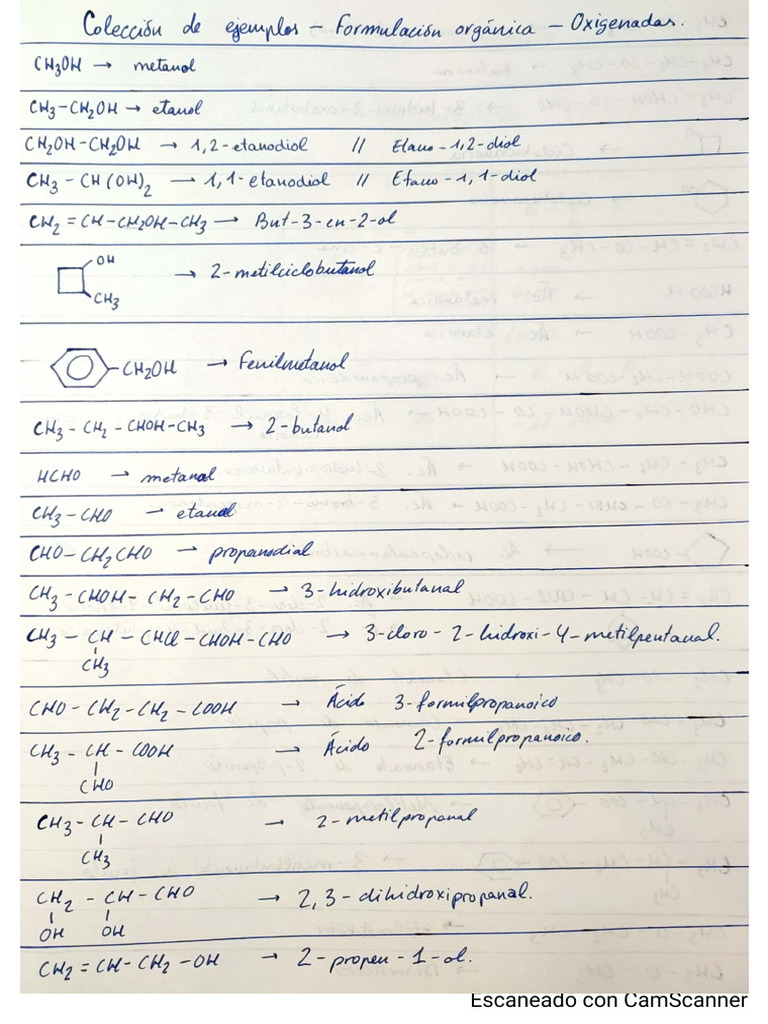 Colección de ejemplos - Formulación orgánica - Oxigenadas.
CH3OH → metanol
CH3-CH2OH → etanol
CH2OH-CH2OH → 1,2-etanodiol // Etano-1,2-diol
CH3-CH(OH)2 → 1,1-etanodiol // Etano-1,1-diol
CH2=CH-CH2OH-CH3 → But-3-en-2-ol
OH
→ 2-metilciclobutanol
CH3
CH2OH → Fenilmetanol
CH3-CH2-CHOH-CH3 → 2-butanol
HCHO → metanal
CH3-CHO → etanal
CHO-CH2CHO → propanodial
CH3-CHOH-CH2-CHO → 3-hidroxibutanal
CH3-CH-CHCl-CHOH-CHO → 3-cloro-2-hidroxi-4-metilpentanal.
CH3
CHO-CH2-CH2-COOH → Ácido 3-formilpropanoico
CH3-CH-COOH → Ácido 2-formilpropanoico.
CHO
CH3-CH-CHO → 2-metilpropanal
CH3
CH2-CH-CHO → 2,3-dihidroxipropanal.
OH OH
CH2=CH-CH2-OH → 2-propen-1-ol.
Escaneado con CamScanner